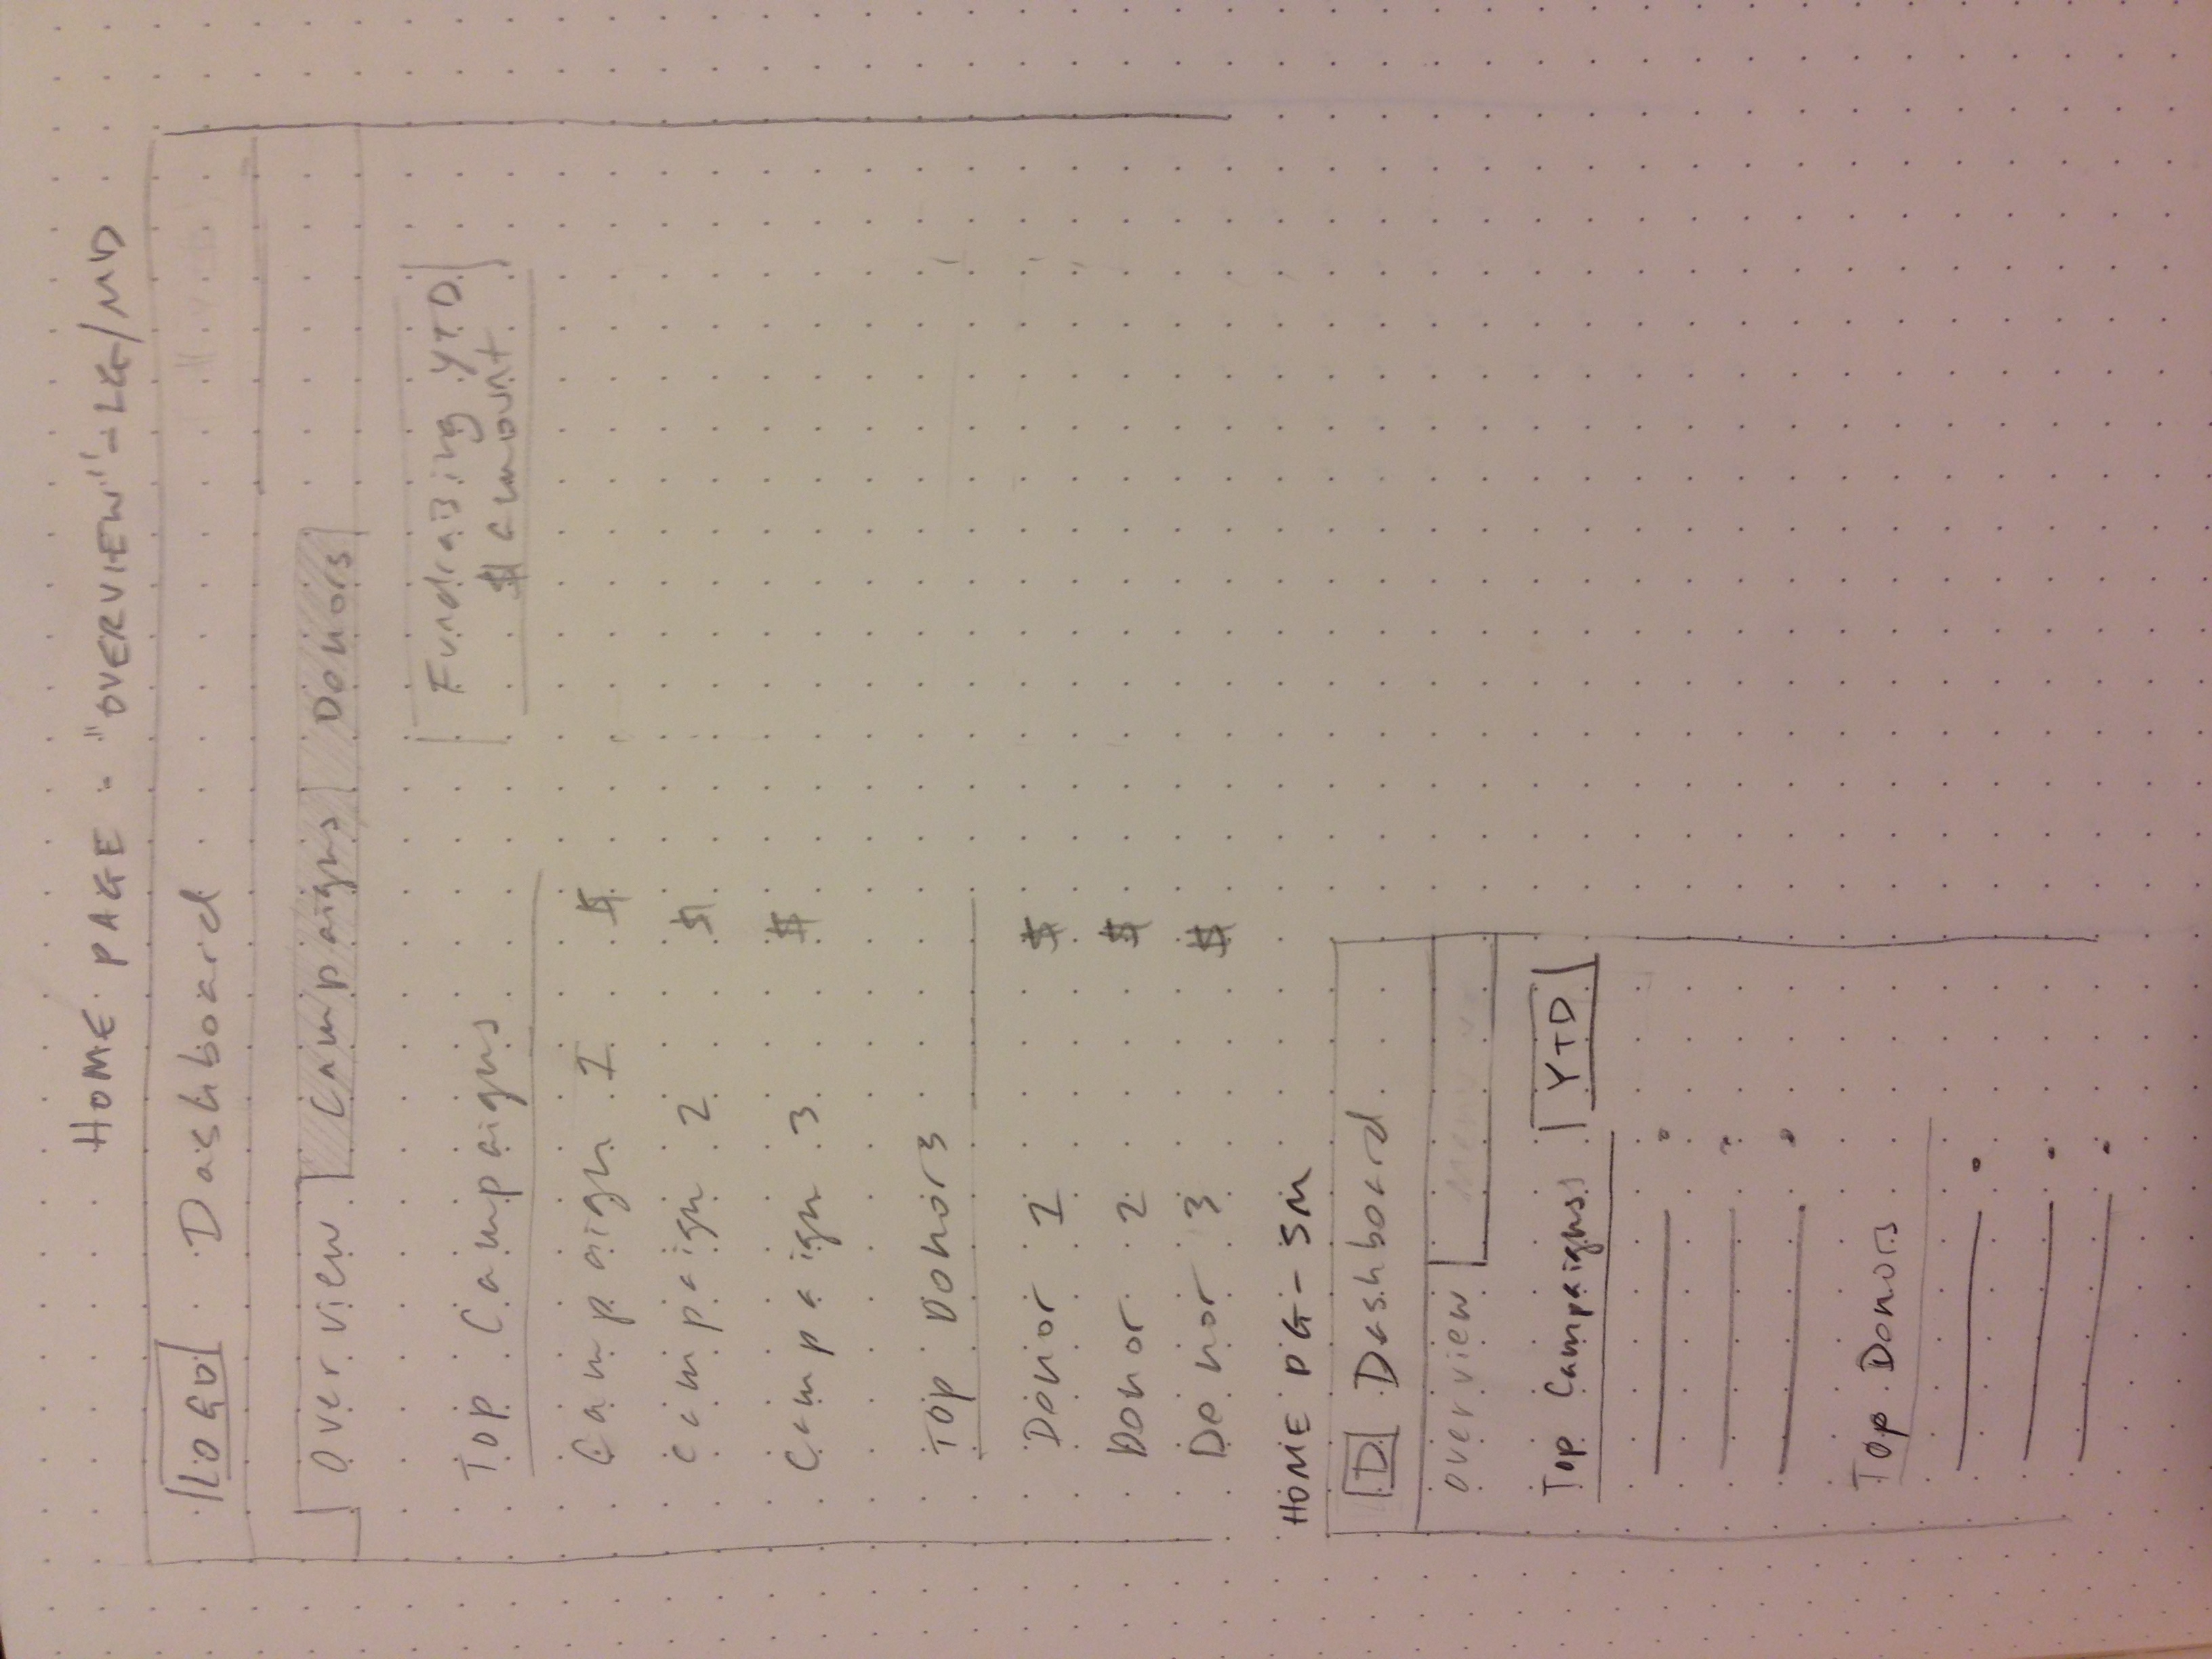 HOME PAGE - "OVERVIEW" - LG/MD
LOGO Dashboard
Overview Campaigns Donors
Fundraising YTD
$ amount
Top Campaigns
Campaign 1 $
Campaign 2 $
Campaign 3 $
Top Donors
Donor 1 $
Donor 2 $
Donor 3 $
HOME PG - SM
D Dashboard
Overview Menu
Top Campaigns YTD
Top Donors